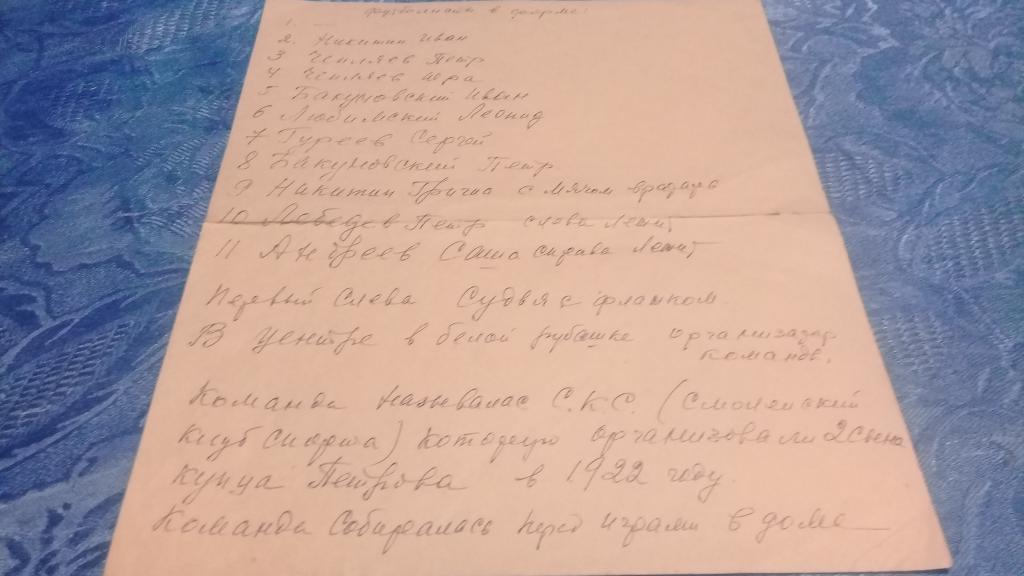 Футболисты в форме:
1. —
2. Никитин Иван
3 Чепляев Петр
4 Чепляев Шура
5 Бакумовский Иван
6 Любимский Леонид
7 Гуреев Сергей
8 Бакумовский Петр
9 Никитин Гриша с мячом вратарь
10 Лебедев Петр слева лежит
11 Андреев Саша справа лежит
Первый слева Судья с флашком.
В центре в белой рубашке организатор
команды.
Команда называлас С.К.С. (Смоленский
клуб спорта) которую организовали 2 сына
купца Петрова в 1922 году.
Команда собиралась перед играми в доме